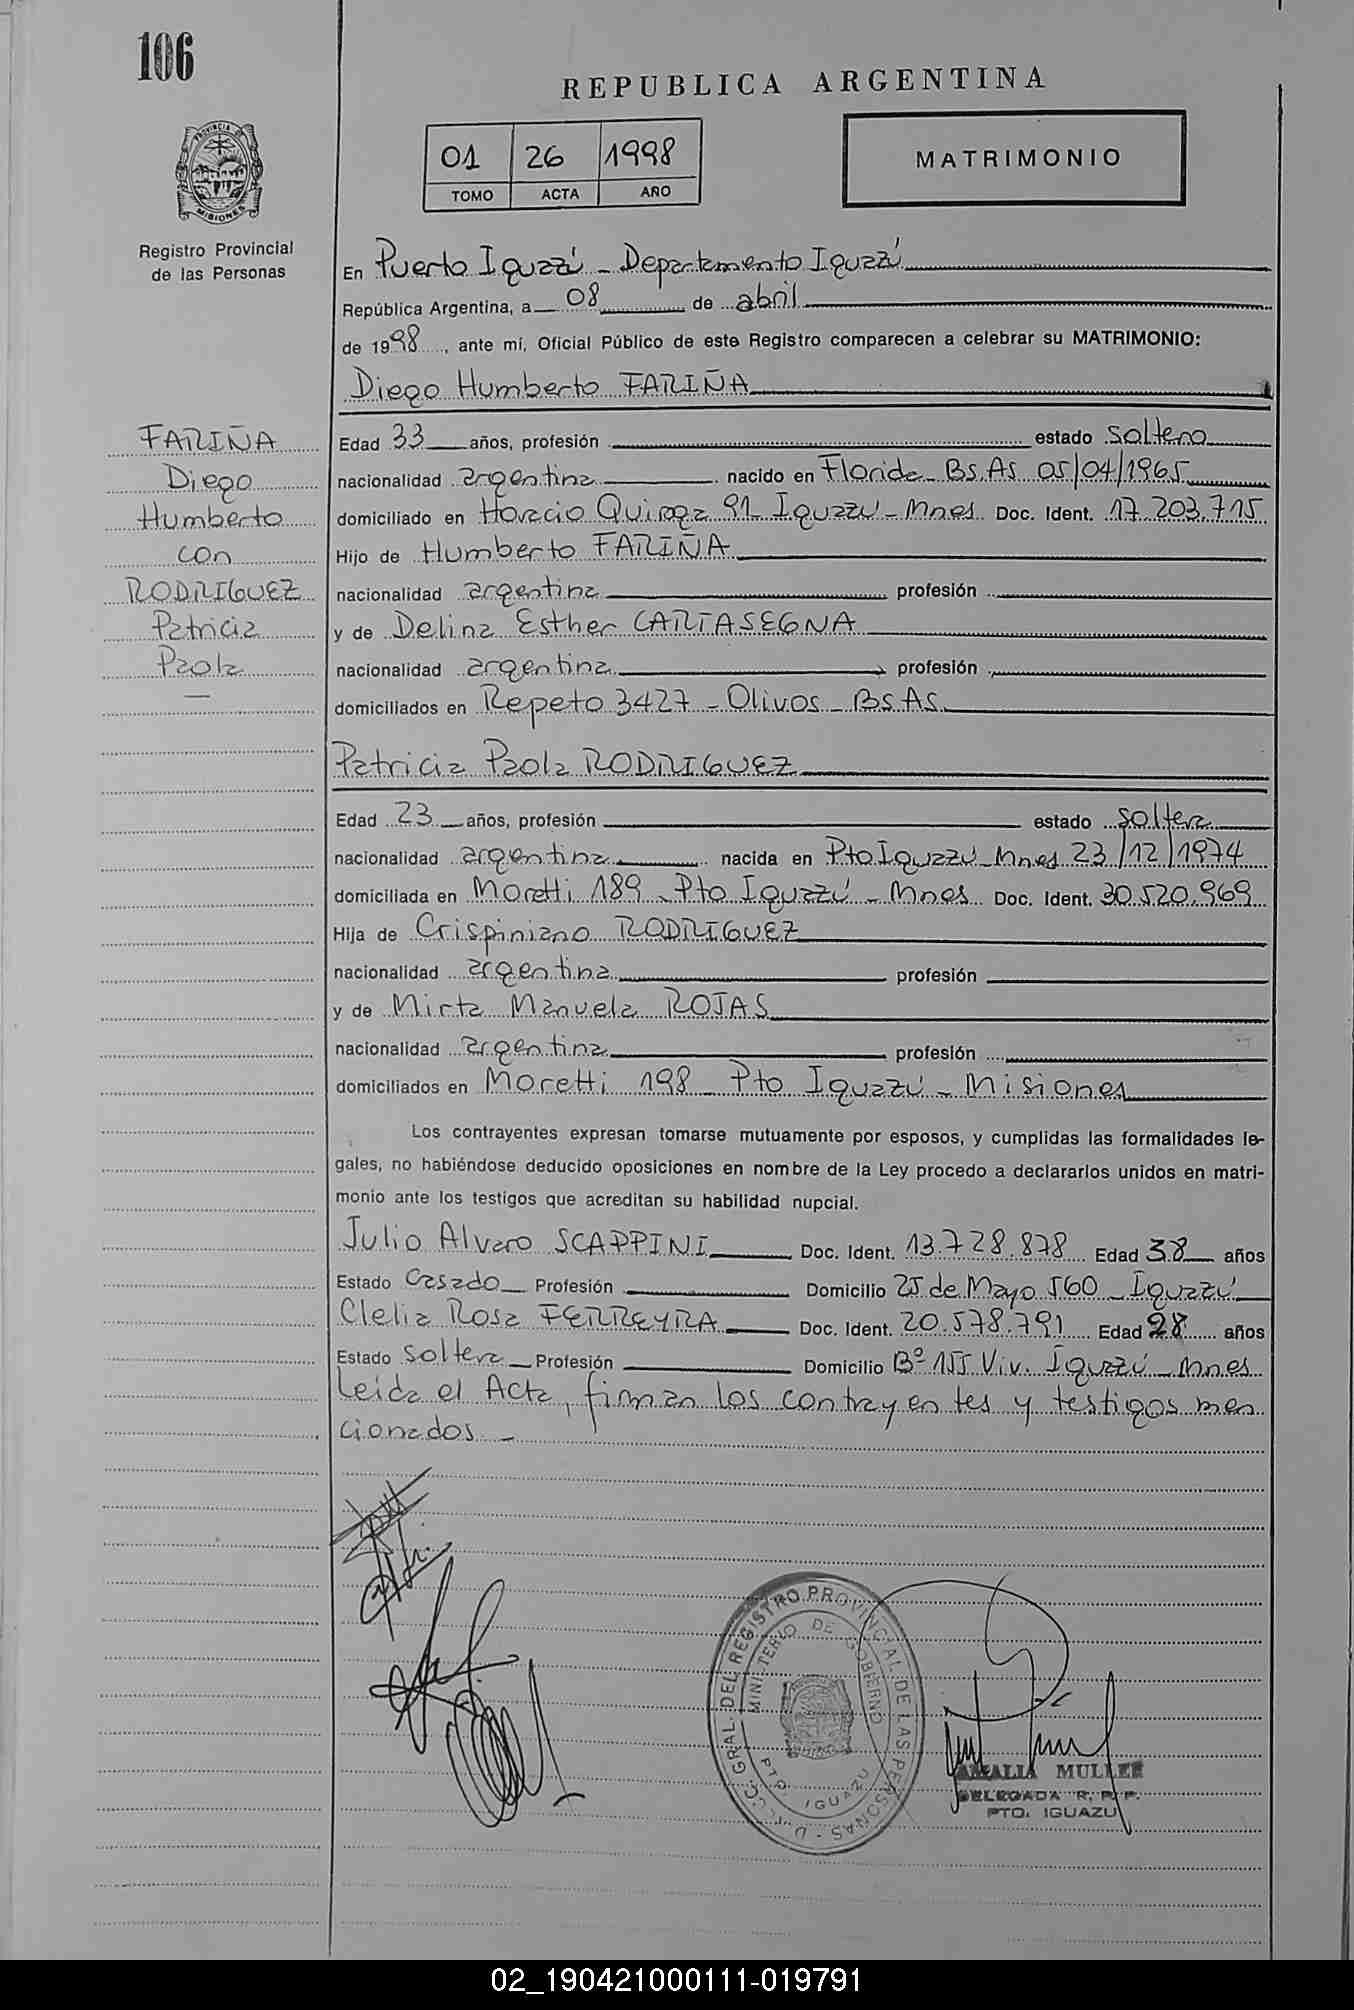 106
REPUBLICA ARGENTINA
PROVINCIA DE
MISIONES
Registro Provincial
de las Personas
01 26 1998
TOMO ACTA AÑO
MATRIMONIO
En Puerto Iguazú - Departamento Iguazú
República Argentina, a 08 de abril
de 1998, ante mí, Oficial Público de este Registro comparecen a celebrar su MATRIMONIO:
Diego Humberto FARIÑA
FARIÑA
Diego
Humberto
con
RODRIGUEZ
Patricia
Paola
—
Edad 33 años, profesión estado soltero
nacionalidad argentina nacido en Florida - Bs.As 05/04/1965
domiciliado en Horacio Quiroga 91 - Iguazú - Mnes Doc. Ident. 17.203.715
Hijo de Humberto FARIÑA
nacionalidad argentina profesión
y de Delina Esther CARTASEGNA
nacionalidad argentina profesión
domiciliados en Repeto 3427 - Olivos - Bs As
Patricia Paola RODRIGUEZ
Edad 23 años, profesión estado soltera
nacionalidad argentina nacida en Pto Iguazú - Mnes 23/12/1974
domiciliada en Moretti 189 - Pto Iguazú - Mnes Doc. Ident. 30.520.969
Hija de Crispiniano RODRIGUEZ
nacionalidad argentina profesión
y de Mirta Manuela ROJAS
nacionalidad argentina profesión
domiciliados en Moretti 198 - Pto Iguazú - Misiones
Los contrayentes expresan tomarse mutuamente por esposos, y cumplidas las formalidades le-
gales, no habiéndose deducido oposiciones en nombre de la Ley procedo a declararlos unidos en matri-
monio ante los testigos que acreditan su habilidad nupcial.
Julio Alvaro SCAPPINI Doc. Ident. 13.728.878 Edad 38 años
Estado Casado Profesión Domicilio 25 de Mayo 560 - Iguazú
Clelia Rosa FERREYRA Doc. Ident. 20.578.791 Edad 28 años
Estado soltera Profesión Domicilio Bº 155 Viv. Iguazú - Mnes
Leida el Acta, firman los contrayentes y testigos men
cionados -
DIRECC. GRAL. DEL REGISTRO PROVINCIAL DE LAS PERSONAS
MINISTERIO DE GOBIERNO
PTO. IGUAZU
AMALIA MULLER
DELEGADA R. P. P.
PTO. IGUAZU
02_190421000111-019791